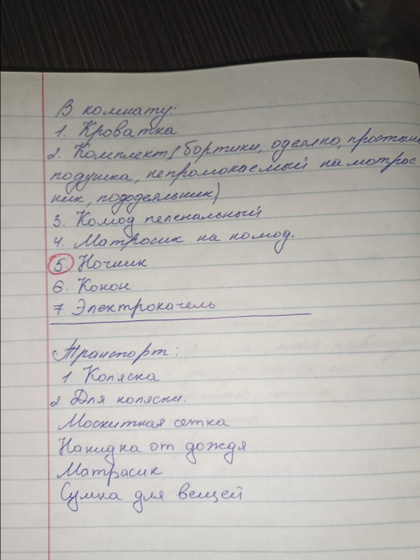 В комнату:
1. Кроватка
2. Комплект (бортики, одеялко, простынь
подушка, непромокаемый на матрос
ник, пододеяльник)
3. Комод пеленальный
4. Матросик на комод.
5. Ночник
6. Кокон
7. Электрокачель
Транспорт:
1. Коляска
2 Для коляски:
Москитная сетка
Накидка от дождя
Матрасик
Сумка для вещей